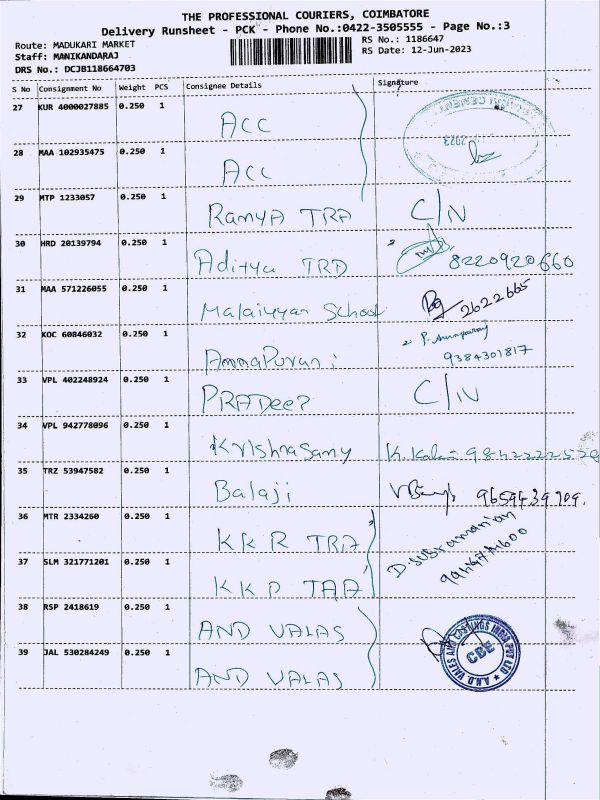 THE PROFESSIONAL COURIERS, COIMBATORE
Delivery Runsheet - PCK - Phone No.:0422-3505555 - Page No.:3
Route: MADUKARI MARKET RS No.: 1186647
Staff: MANIKANDARAJ RS Date: 12-Jun-2023
DRS No.: DCJB118664703
S No Consignment No Weight PCS Consignee Details Signature
27 KUR 4000027885 0.250 1 ACC
CEMENT
2023
28 MAA 102935475 0.250 1 ACC
29 MTP 1233057 0.250 1 RamyA TRA C/N
30 HRD 20139794 0.250 1 Aditya TRD 8220920660
31 MAA 571226055 0.250 1 Malaiyyan School 2622665
32 KOC 60846032 0.250 1 AnnaPurani 9384301817
33 VPL 402248924 0.250 1 PRADeeP C/N
34 VPL 942778096 0.250 1 KrishnaSamy
35 TRZ 53947582 0.250 1 Balaji 9659439709.
36 MTR 2334260 0.250 1 KKR TRA D. SUBramanian
37 SLM 321771201 0.250 1
38 RSP 2418619 0.250 1 AND VALAS
39 JAL 530284249 0.250 1 AND VALAS
A.N.D. VALES AND CASINGS INDIA PVT LTD
CBE